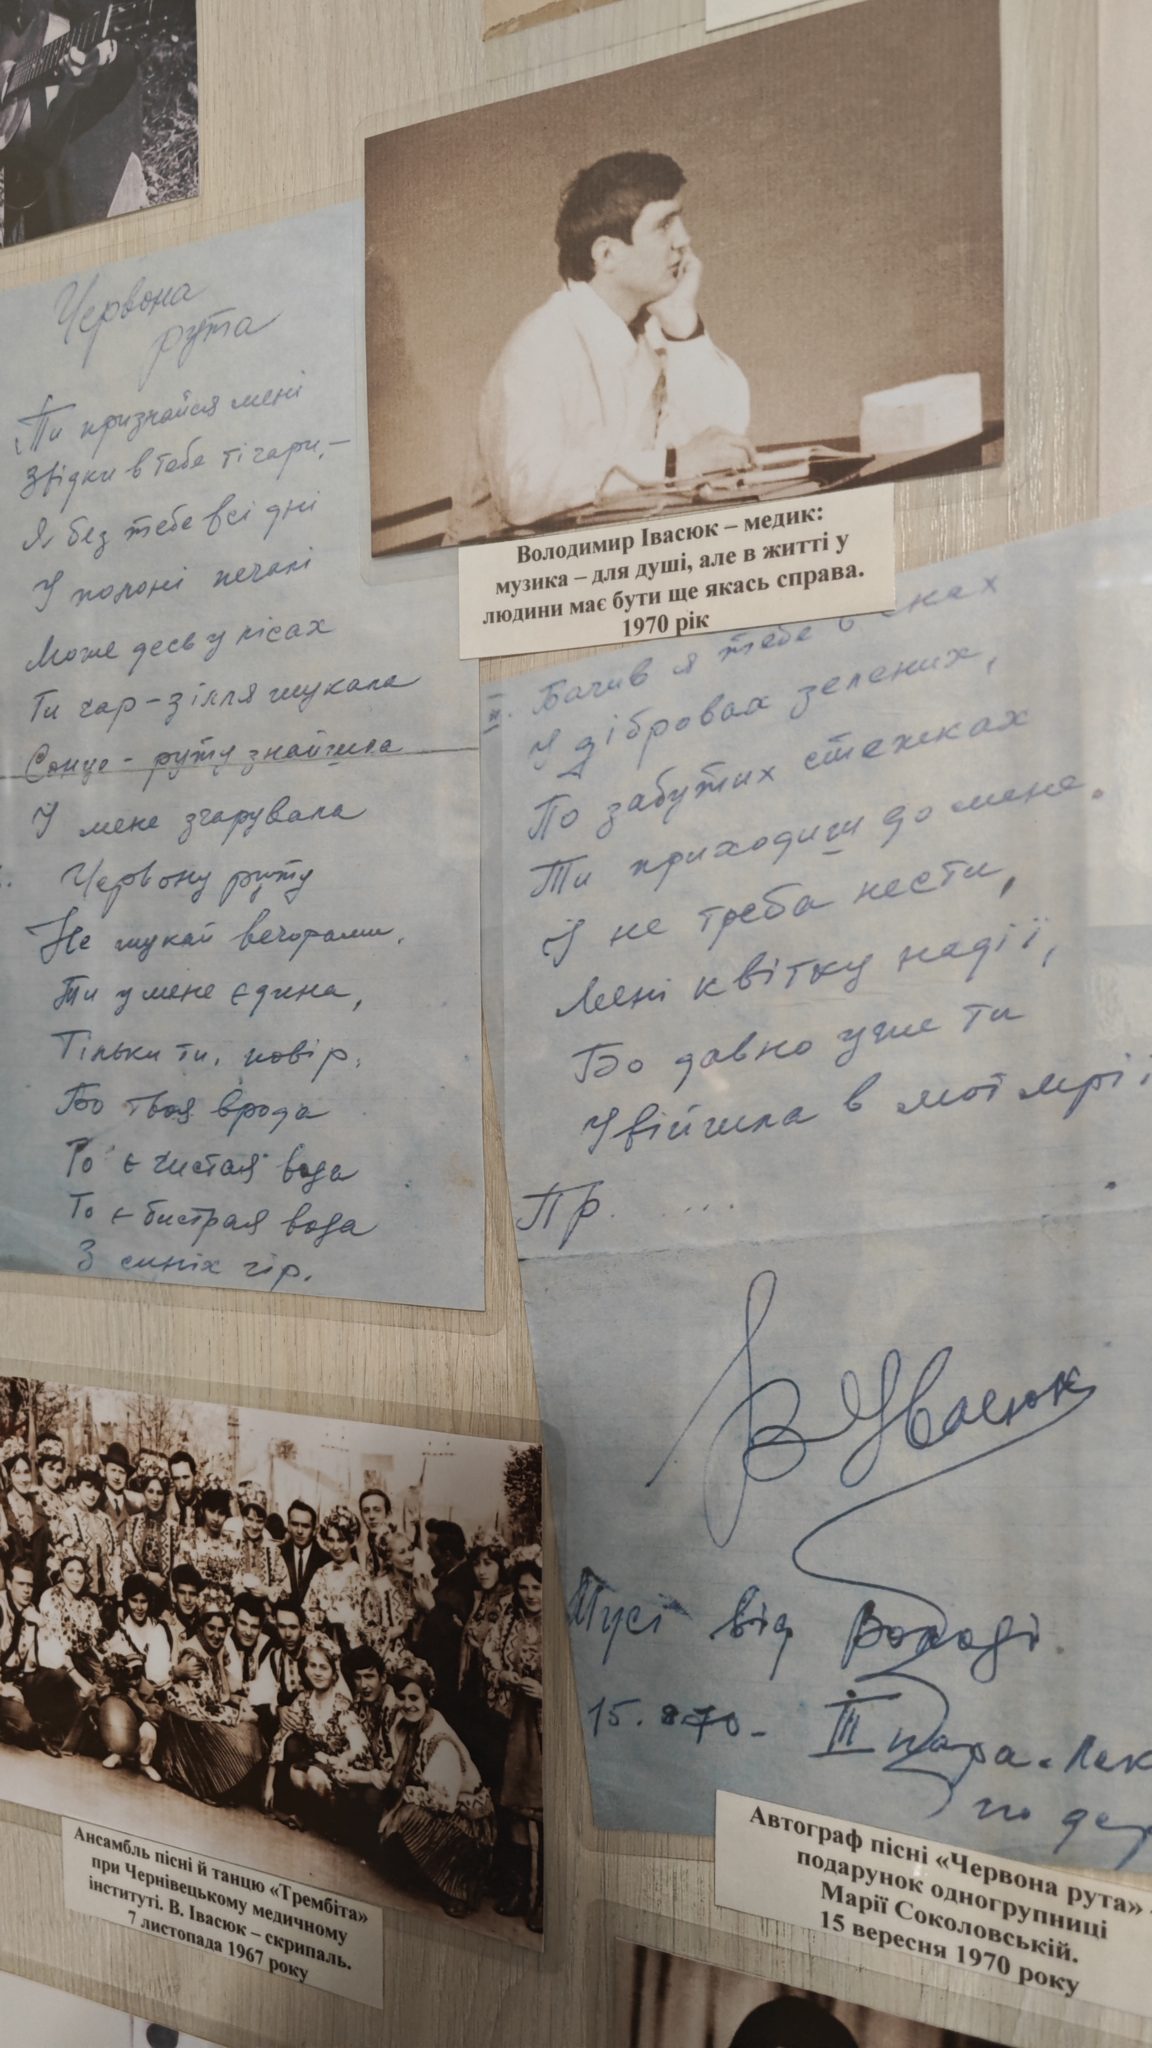 Червона
рута
Ти признайся мені
Звідки в тебе ті чари, –
Я без тебе всі дні
У полоні печалі
Може десь у лісах
Ти чар-зілля шукала
Сонце-руту знайшла
І мене зчарувала
Червону руту
Не шукай вечорами,
Ти у мене єдина,
Тільки ти, повір.
Бо твоя врода
То є чистая вода
То є бистрая вода
З синіх гір.
Володимир Івасюк – медик:
музика – для душі, але в житті у
людини має бути ще якась справа.
1970 рік
II. Бачив я тебе в снах
У дібровах зелених,
По забутих стежках
Ти приходиш до мене.
І не треба нести,
Мені квітку надії,
Бо давно уже ти
Увійшла в мої мрії
Пр. ....
В Івасюк
Мусі від Володі
15. 70 – III пара. Лек
по дер
Ансамбль пісні й танцю «Трембіта»
при Чернівецькому медичному
інституті. В. Івасюк – скрипаль.
7 листопада 1967 року
Автограф пісні «Червона рута» -
подарунок одногрупниці
Марії Соколовській.
15 вересня 1970 року